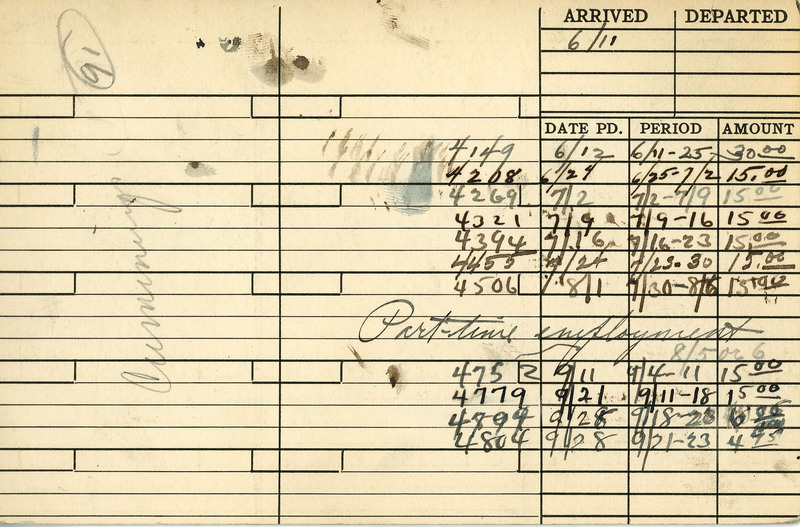 ARRIVED DEPARTED
91
6/11
DATE PD. PERIOD AMOUNT
4149 6/12 6/11-25 30.00
4208 6/29 6/25-7/2 15.00
4269 7/2 7/2-7/9 15.00
4321 7/9 7/9-16 15.00
4394 7/16 7/16-23 15.00
4455 7/24 7/23-30 15.00
4506 8/1 7/30-8/6 15.00
Part-time employment
8/5 or 6
4752 9/11 9/4-11 15.00
4779 9/21 9/11-18 15.00
4894 9/28 9/18-
4804 9/28 9/21-23 4.95
Cummings